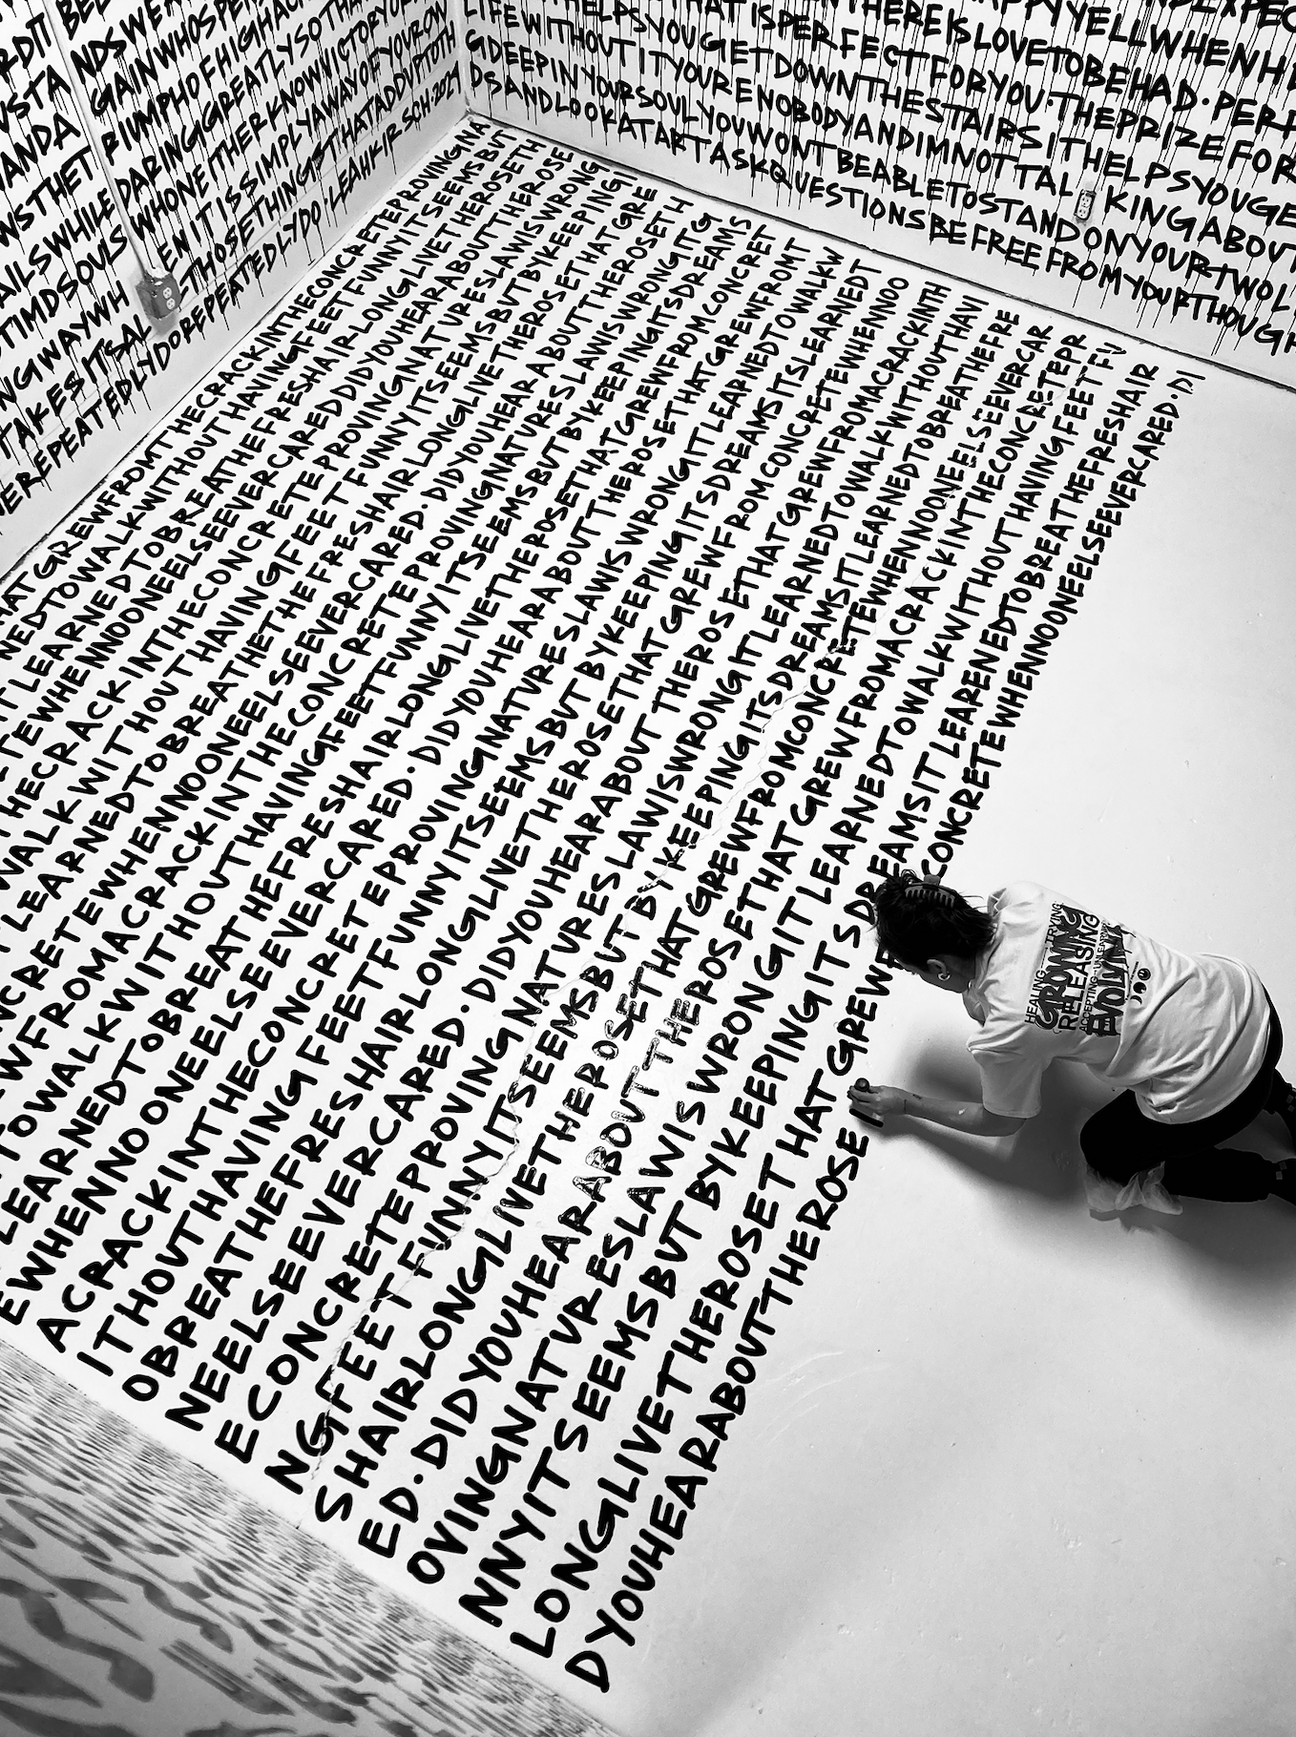 NDSWEA
GAINWHOSPE
RIUMPHOFHIGHAC
AILSWHILE DARINGGREATLYSOTHA
TIMDSOULS WHONEITHERKNOWVICTORYOR
NGWAYWH ENITISSIMPLYAWAYOFYOUROW
TAKESITSAL THOSETHINGSTHATADDUPTOTH
REPEATEDLYDOREPEATEDLYDO·LEAHKIRSCH·2021
PPYYELLWHENH
THEREISLOVETOBEHAD·PER
HATISPERFECTFORYOU·THEPRIZEFOR
HELPSYOUGETDOWNTHESTAIRSITHELPSYOUGE
LIFEWITHOUTITYOURENOBODYANDIMNOTTALKINGABOUT
GDEEPINYOURSOULYOUWONTBEABLETOSTANDONYOURTWOL
DSANDLOOKATARTASKQUESTIONSBEFREEFROMYOURTHOUGH
HATGREWFROMTHECRACKINTHECONCRETEPROVINGNA
NEDTOWALKWITHOUTHAVINGFEETFUNNYITSEEMSBUT
TLEARNEDTOBREATHEFRESHAIRLONGLIVETHEROSETH
ETEWHENNOONEELSEEVERCAREDDIDYOUHEARABOUTTHEROSE
THECRACKINTHECONCRETEPROVINGNATURESLAWISWRONG
WALKWITHOUTHAVINGFEETFUNNYITSEEMSBUTBYKEEPINGI
TLEARNEDTOBREATHETHEFRESHAIRLONGLIVETHEROSETHATGRE
NCRETEWHENNOONEELSEEVERCARED·DIDYOUHEARABOUTTHEROSETH
EWFROMACRACKINTHECONCRETEPROVINGNATURESLAWISWRONGITG
TOWALKWITHOUTHAVINGFEETFUNNYITSEEMSBUTBYKEEPINGITSDREAMS
LEARNEDTOBREATHETHEFRESHAIRLONGLIVETHEROSETHATGREWFROMCONCRET
EWHENNOONEELSEEVERCARED·DIDYOUHEARABOUTTHEROSETHATGREWFROMT
ACRACKINTHECONCRETEPROVINGNATURESLAWISWRONGITLEARNEDTOWALKW
ITHOUTHAVINGFEETFUNNYITSEEMSBUTBYKEEPINGITSDREAMSITSLEARNEDT
OBREATHETHEFRESHAIRLONGLIVETHEROSETHATGREWFROMCONCRETEWHENNOO
NEELSEEVERCARED·DIDYOUHEARABOUTTHEROSETHATGREWFROMACRACKINTH
ECONCRETEPROVINGNATURESLAWISWRONGITLEARNEDTOWALKWITHOUTHAVI
NGFEETFUNNYITSEEMSBUTBYKEEPINGITSDREAMSITLEARNEDTOBREATHEFRE
SHAIRLONGLIVETHEROSETHATGREWFROMCONCRETEWHENNOONEELSEEVERCAR
ED·DIDYOUHEARABOUTTHEROSETHATGREWFROMACRACKINTHECONCRETEPR
OVINGNATURESLAWISWRONGITLEARNEDTOWALKWITHOUTHAVINGFEETFU
NNYITSEEMSBUTBYKEEPINGITSDREAMSITLEARENEDTOBREATHEFRESHAIR
LONGLIVETHEROSETHATGREWFROMCONCRETEWHENNOONEELSEEVERCARED·DI
DYOUHEARABOUTTHEROSE
HEALING TRYING
GROWING
RELEASING
ACCEPTING UNLEARNING
EVOLVING